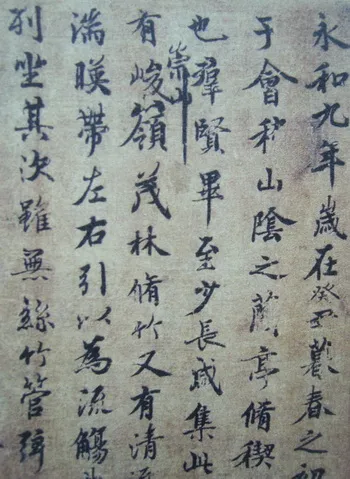 永和九年歲在癸丑暮春之初
于會稽山陰之蘭亭脩稧
也羣賢畢至少長咸集此
有崇山峻嶺茂林脩竹又有清流
湍暎帶左右引以為流觴
列坐其次雖無絲竹管弦